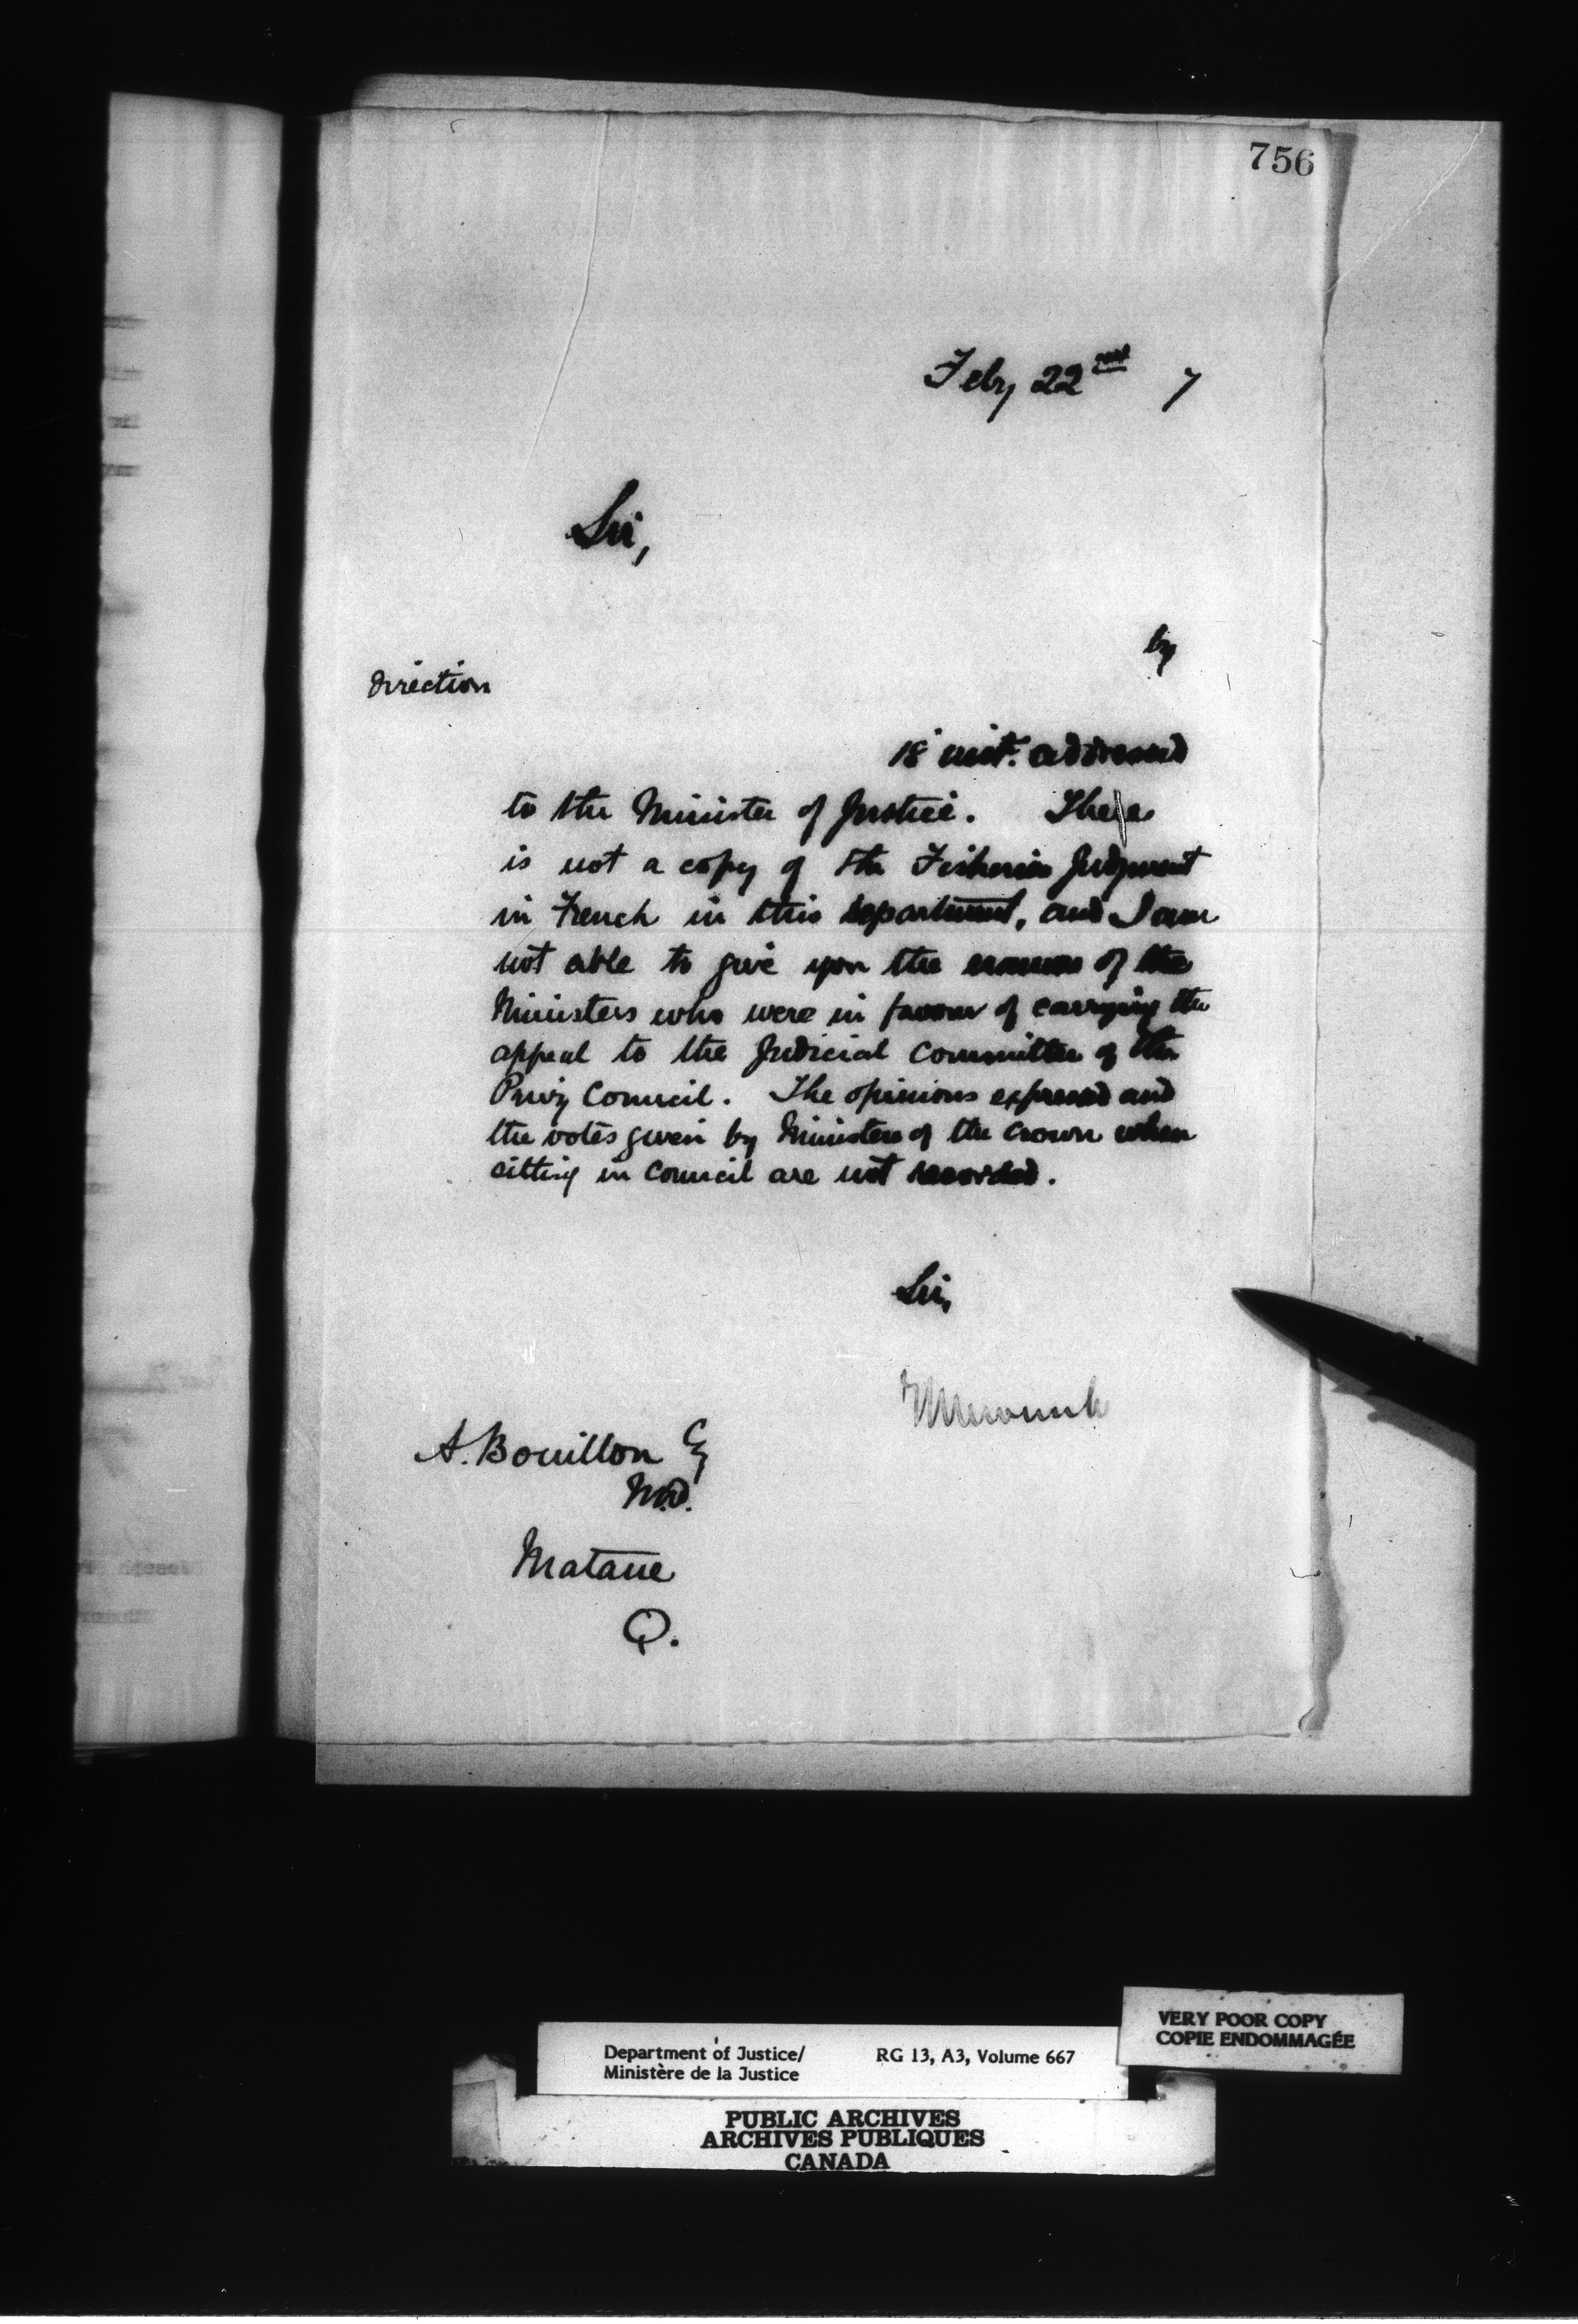 756
Feby 22nd 7
Sir,
by
direction
18 inst. addressed
to the Minister of Justice. There
is not a copy of the Fisheries Judgment
in French in this department, and I am
not able to give you the names of the
Ministers who were in favour of carrying the
appeal to the Judicial Committee of the
Privy Council. The opinions expressed and
the votes given by Ministers of the Crown when
sitting in Council are not recorded.
Sir,
A. Bouillon Esq
M.D.
Matane
Q.
VERY POOR COPY
COPIE ENDOMMAGÉE
Department of Justice/ RG 13, A3, Volume 667
Ministère de la Justice
PUBLIC ARCHIVES
ARCHIVES PUBLIQUES
CANADA